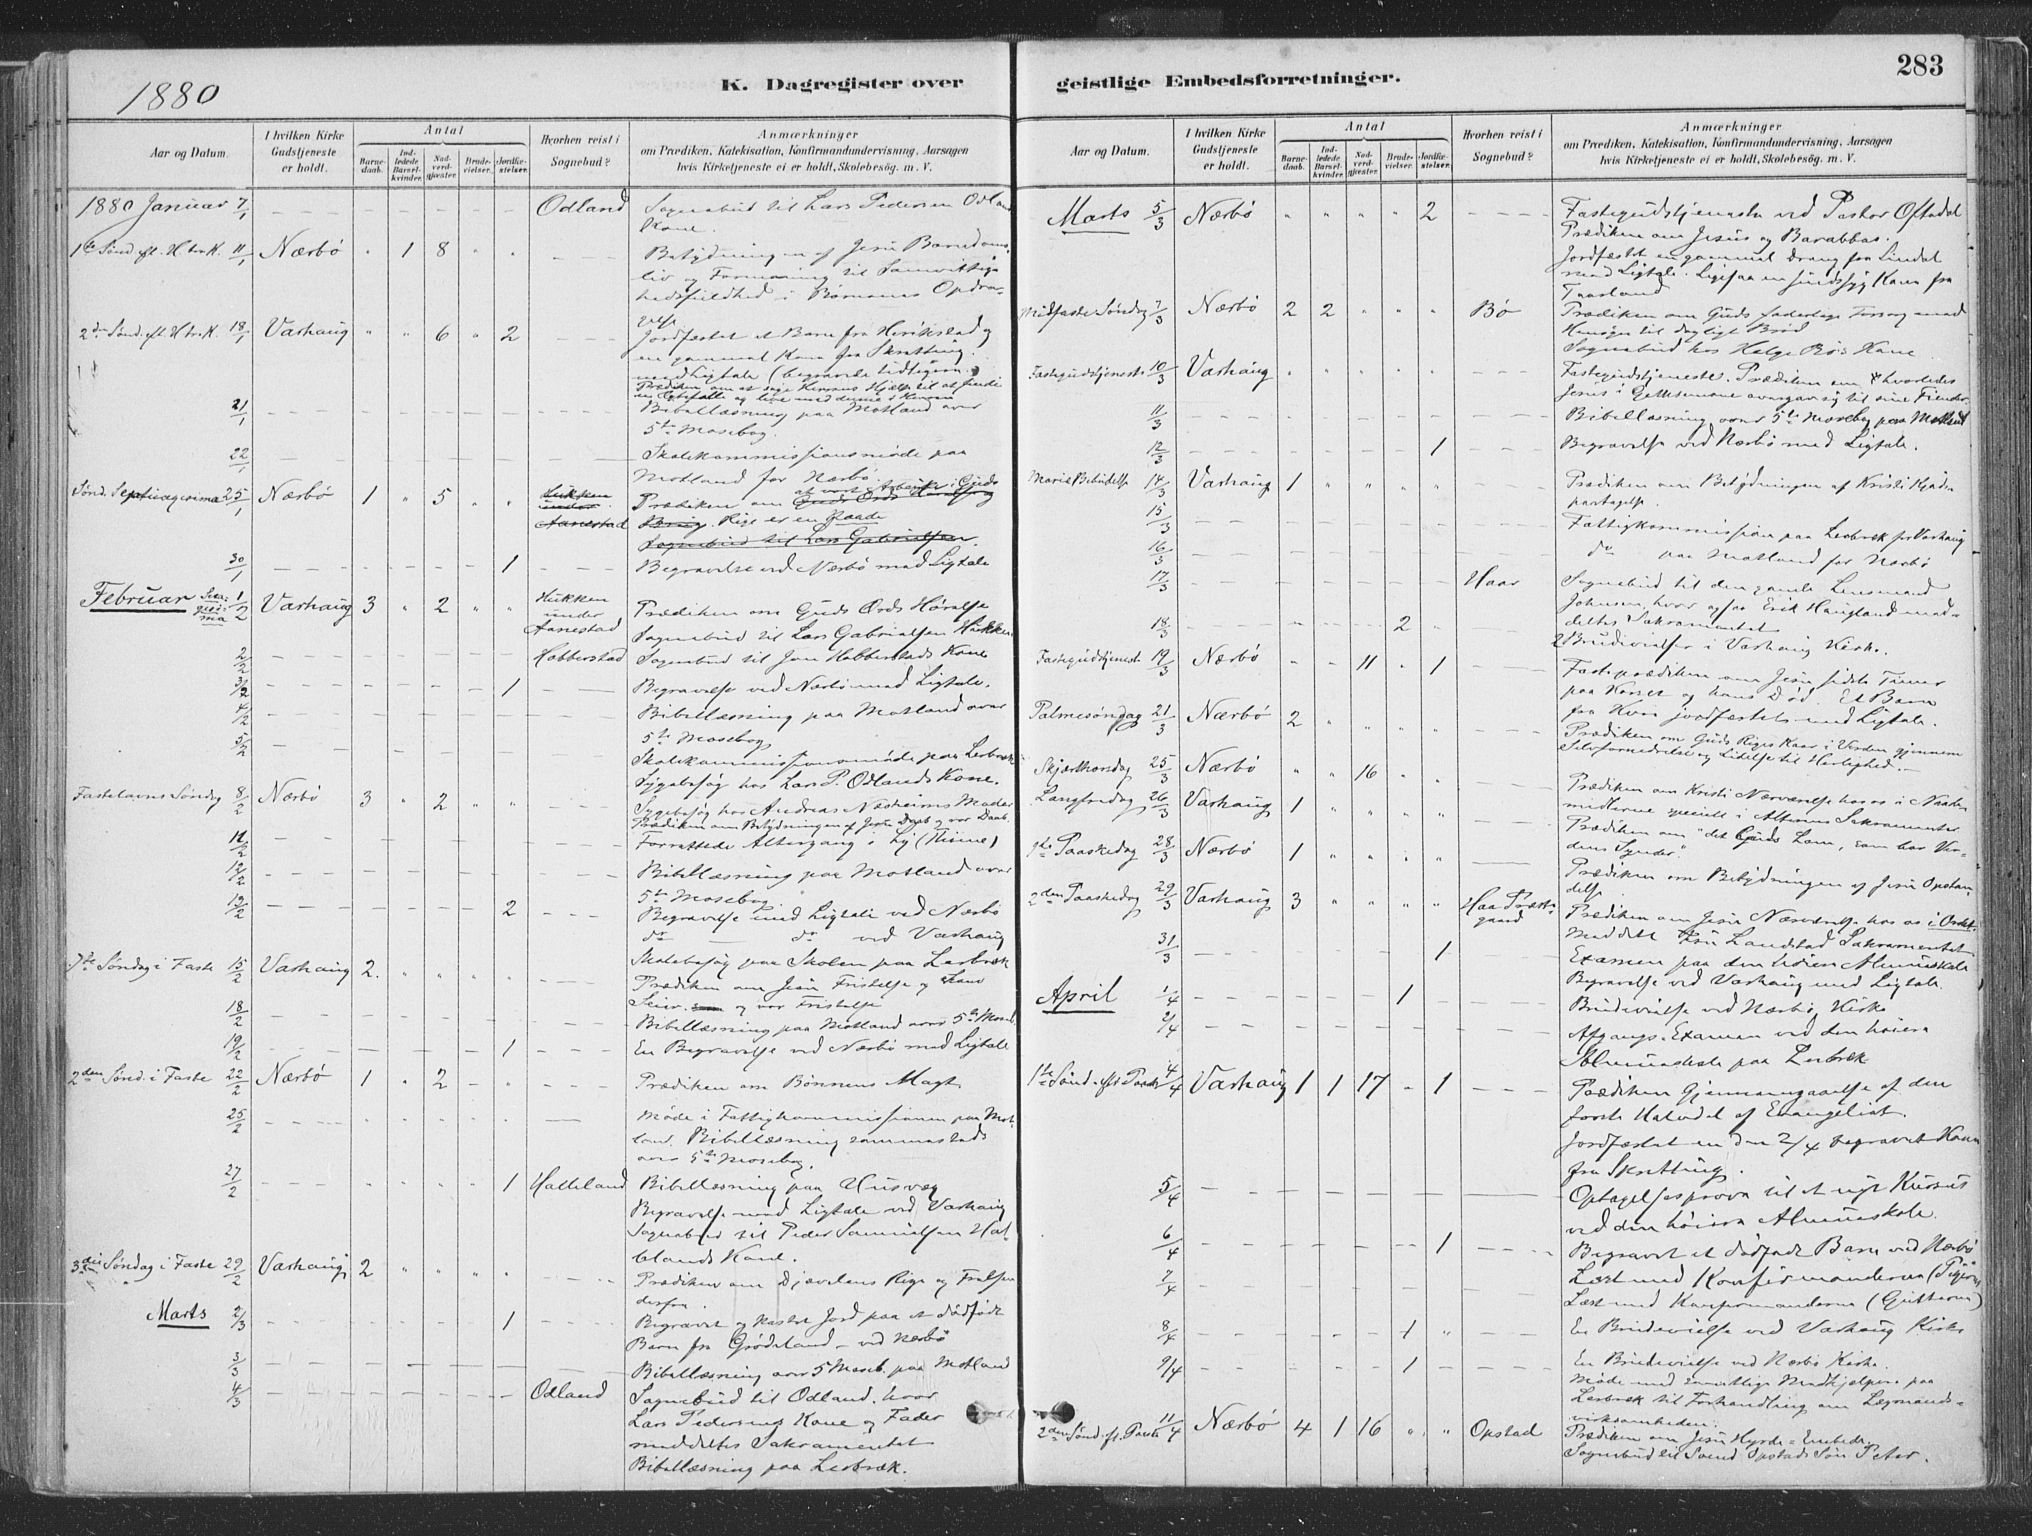 1880
K. Dagregister over
Aar og Datum.
I hvilken Kirke Gudstjeneste er holdt.
Antal
Barnedaab.
Indledede Barselkvinder.
Nadverdgjæster.
Brudevielser.
Jordfæstelser.
Hvorhen reist i Sognebud?
Anmærkninger
om Prædiken, Katekisation, Konfirmandundervisning, Aarsagen
hvis Kirketjeneste ei er holdt, Skolebesøg. m. V.
1880 Januar 7/1 Odland Sognebud til Lars Pedersen Odlands
Kone.
1ste Sønd. eft. H. tr. K. 11/1 Nærbø " 1 8 " " Betydningen af Jesu Barndoms
liv og Formaning til Samvittig-
hedsfuldhed i Børnenes Opdra-
gelse
2den Sønd. eft. H. tr. K. 18/1 Varhaug " " 6 " 2 Jordfæstet et Barn fra Herikstad og
en gammel Kone fra Skretting.
med Ligtale (begravede tidligere.)
21/1 Bibellæsning paa Motland over
5te Mosebog.
22/1 Skolekommissionsmøde paa
Motland for Nærbø.
Sønd. Septuagesima 25/1 Nærbø 1 " 5 " " Hukken under Aanestad Prædiken om Guds Ords Hørelse og
Brug. Rige er en Naade
Sognebud til Lars Gabrielsen.
30/1 1 Begravelse ved Nærbø med Ligtale
Februar Sexagesima 1/2 Varhaug 3 " 2 " " Hukken under Aanestad Prædiken om Guds Ords Hørelse
Sognebud til Lars Gabrielsen Hukken
2/2 Hobberstad Sognebud til Jon Hobberstads Kone
3/2 1 Begravelse ved Nærbø med Ligtale.
4/2 Bibellæsning paa Motland over
5te Mosebog
5/2 Skolekommissionsmøde paa Lerbræk
Sygebesøg hos Lars P. Odlands Kone.
Fastelavns Søndag 8/2 Nærbø 3 " 2 " " Sygebesøg hos Andreas Næsheims Moder
Prædiken om Betydningen af Jesu Daab og vor Daab.
11/2 Forrettede Altergang i Ly (Thime)
12/2 Bibellæsning paa Motland over
5te Mosebog.
13/2 2 Begravelse med Ligtale ved Nærbø
do — do ved Varhaug
1ste Søndag i Faste 15/2 Varhaug 2. " " " " Skolebesøg paa Skolen paa Lerbræk
Prædiken om Jesu Fristelse og hans
Seier og vor Fristelse
18/2 Bibellæsning paa Motland over 5te Moseb.
19/2 1 En Begravelse ved Nærbø med Ligtale
2den Sønd. i Faste 22/2 Nærbø 1 " 2 Prædiken om Bønnens Magt
25/2 Møde i Fattigkommissionen paa Mot-
land. Bibellæsning sammesteds
over 5te Mosebog.
27/2 1 Halleland Bibellæsning paa Husvæg
Begravelse med Ligtale ved Varhaug
Sognebud til Peder Samuelsen Hal-
lelands Kone.
3die Søndag i Faste 29/2 Varhaug 2 " " " " Prædiken om Djævelens Rige og Frelsen
derfra.
Marts 2/3 1 Begravet og kastet Jord paa et dødfødt
Barn fra Grødeland - ved Nærbø
3/3 Bibellæsning over 5 Moseb. paa Motland
4/3 Odland Sognebud til Odland. hvor
Lars Pedersens Kone og Fader
meddeltes Sakramentet
Bibellæsning paa Lerbræk.
geistlige Embedsforretninger.
283
Aar og Datum.
I hvilken Kirke Gudstjeneste er holdt.
Antal
Barnedaab.
Indledede Barselkvinder.
Nadverdgjæster.
Brudevielser.
Jordfæstelser.
Hvorhen reist i Sognebud?
Anmærkninger
om Prædiken, Katekisation, Konfirmandundervisning, Aarsagen
hvis Kirketjeneste ei er holdt, Skolebesøg. m. V.
Marts 5/3 Nærbø " " " " 2 Fastegudstjeneste ved Pastor Oftedal
Prædiken om Jesus og Barabbas.
Jordfæstet en gammel Dreng fra Lindal
med Ligtale. Ligesaa en sindssyg Kone fra
Taarland
Midfaste Søndag 7/3 Nærbø 2 2 " " " Bø Prædiken om Guds faderlige Forsorg med
Hensyn til dagligt Brød
Sognebud hos Helge Bøs Kone
Fastegudstjeneste 10/3 Varhaug " " " " " Fastegudstjeneste. Prædiken om hvorledes
Jesus i Gethsemane overgav sig til sine Fiender.
11/3 Bibellæsning over 5te Mosebog paa Motland
12/3 1 Begravelse ved Nærbø med Ligtale.
Mariæ Bebudelse 14/3 Varhaug 1 " " " " Prædiken om Betydningen af Kristi Kjøds
paatagelse.
15/3 Fattigkommission paa Lerbræk for Varhaug
16/3 do paa Motland for Nærbø
17/3 Haar Sognebud til den gamle Lensmand
Johnsen, hvor ogsaa Erik Haugland med-
deltes Sakramentet
18/3 2 2 Brudevielser i Varhaug Kirke.
Fastegudstjeneste 19/3 Nærbø " " 11 " 1 Fasteprædiken om Jesu sidste Timer
paa Korset og hans Død. Et Barn
fra Hvin jordfæstet med Ligtale.
Palmesøndag 21/3 Nærbø 2 " " " " Prædiken om Guds Riges Kaar i Verden gjennem
Selvfornedrelse og Lidelse til Herlighed.
Skjærthorsdag 25/3 Nærbø " " 16 " " Prædiken om Kristi Nærværelse hos os i Naade-
midlerne specielt i Alterens Sakramenter
Langfredag 26/3 Varhaug 1 " " " " Prædiken om "det Guds Lam, som bar Ver-
dens Synder."
1ste Paaskedag 28/3 Nærbø 1 " " " " Prædiken om Betydningen af Jesu Opstan-
delse
2den Paaskedag 29/3 Varhaug 3 " " " " Haa Præstegaard Prædiken om Jesu Nærværelse hos os i Ordet.
Meddelt Landstad Sakramentet
31/3 1 Examen paa den høiere Almueskole
Begravelse ved Varhaug med Ligtale.
April 1/4 1 Brudevielse ved Nærbø Kirke
2/4 Afgangs-Examen ved den høiere
Almueskole paa Lerbræk
1ste Sønd. eft. Paaske 4/4 Varhaug 1 1 17 " 1 Prædiken Gjennemgaaelse af den
første Halvdel af Evangeliet.
Jordfæstet en den 2/4 begravet Kone
fra Skretting.
5/4 Optagelsesprøve til et nyt Kursus
ved den høiere Almueskole.
6/4 1 Begravet et dødfødt Barn ved Nærbø
7/4 Læst med Konfirmanderne (Pigerne)
Læst med Konfirmanderne (Gutterne)
8/4 1 En Brudevielse ved Varhaug Kirke
9/4 1 En Brudevielse ved Nærbø Kirke.
Møde med Medhjælpere paa
Lerbræk til Forhandling om Lægmands-
virksomheden.
2den Sønd. eft. Paaske 11/4 Nærbø 4 1 16 " " Opstad Prædiken om Jesu Hyrde-Embede
Sognebud til Svend Opstads Søn Peter.